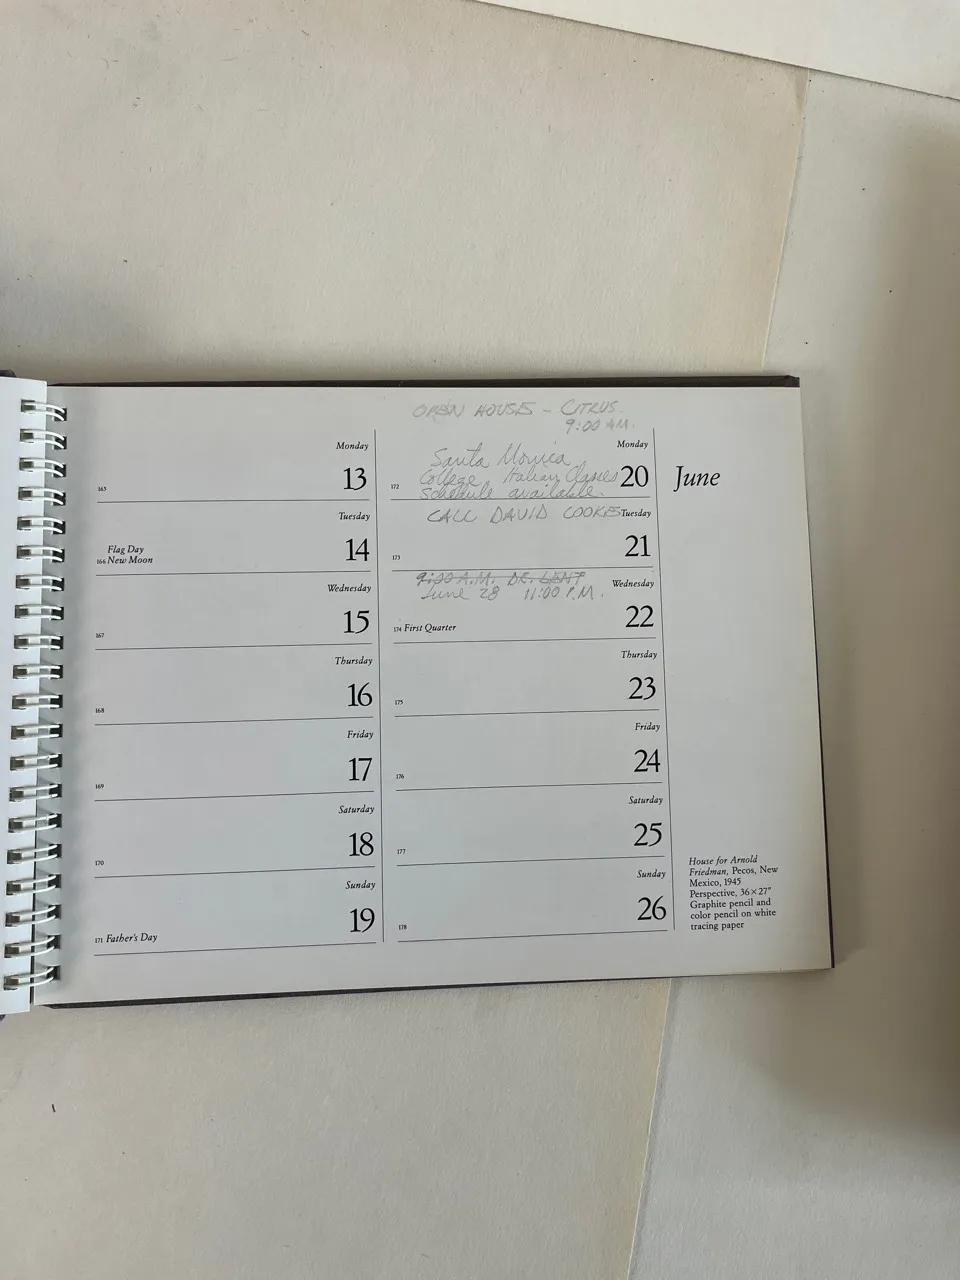 Monday
13
165
Tuesday
14
Flag Day
166 New Moon
Wednesday
15
167
Thursday
16
168
Friday
17
169
Saturday
18
170
Sunday
19
171 Father's Day
OPEN HOUSE - CITRUS
9:00 AM.
Monday
Santa Monica
College Italian Classes
schedule available.
20
172
CALL DAVID COOKE
Tuesday
21
173
9:00 A.M. DR. LENT
June 28 11:00 P.M.
Wednesday
22
174 First Quarter
Thursday
23
175
Friday
24
176
Saturday
25
177
Sunday
26
178
June
House for Arnold
Friedman, Pecos, New
Mexico, 1945
Perspective, 36×27"
Graphite pencil and
color pencil on white
tracing paper